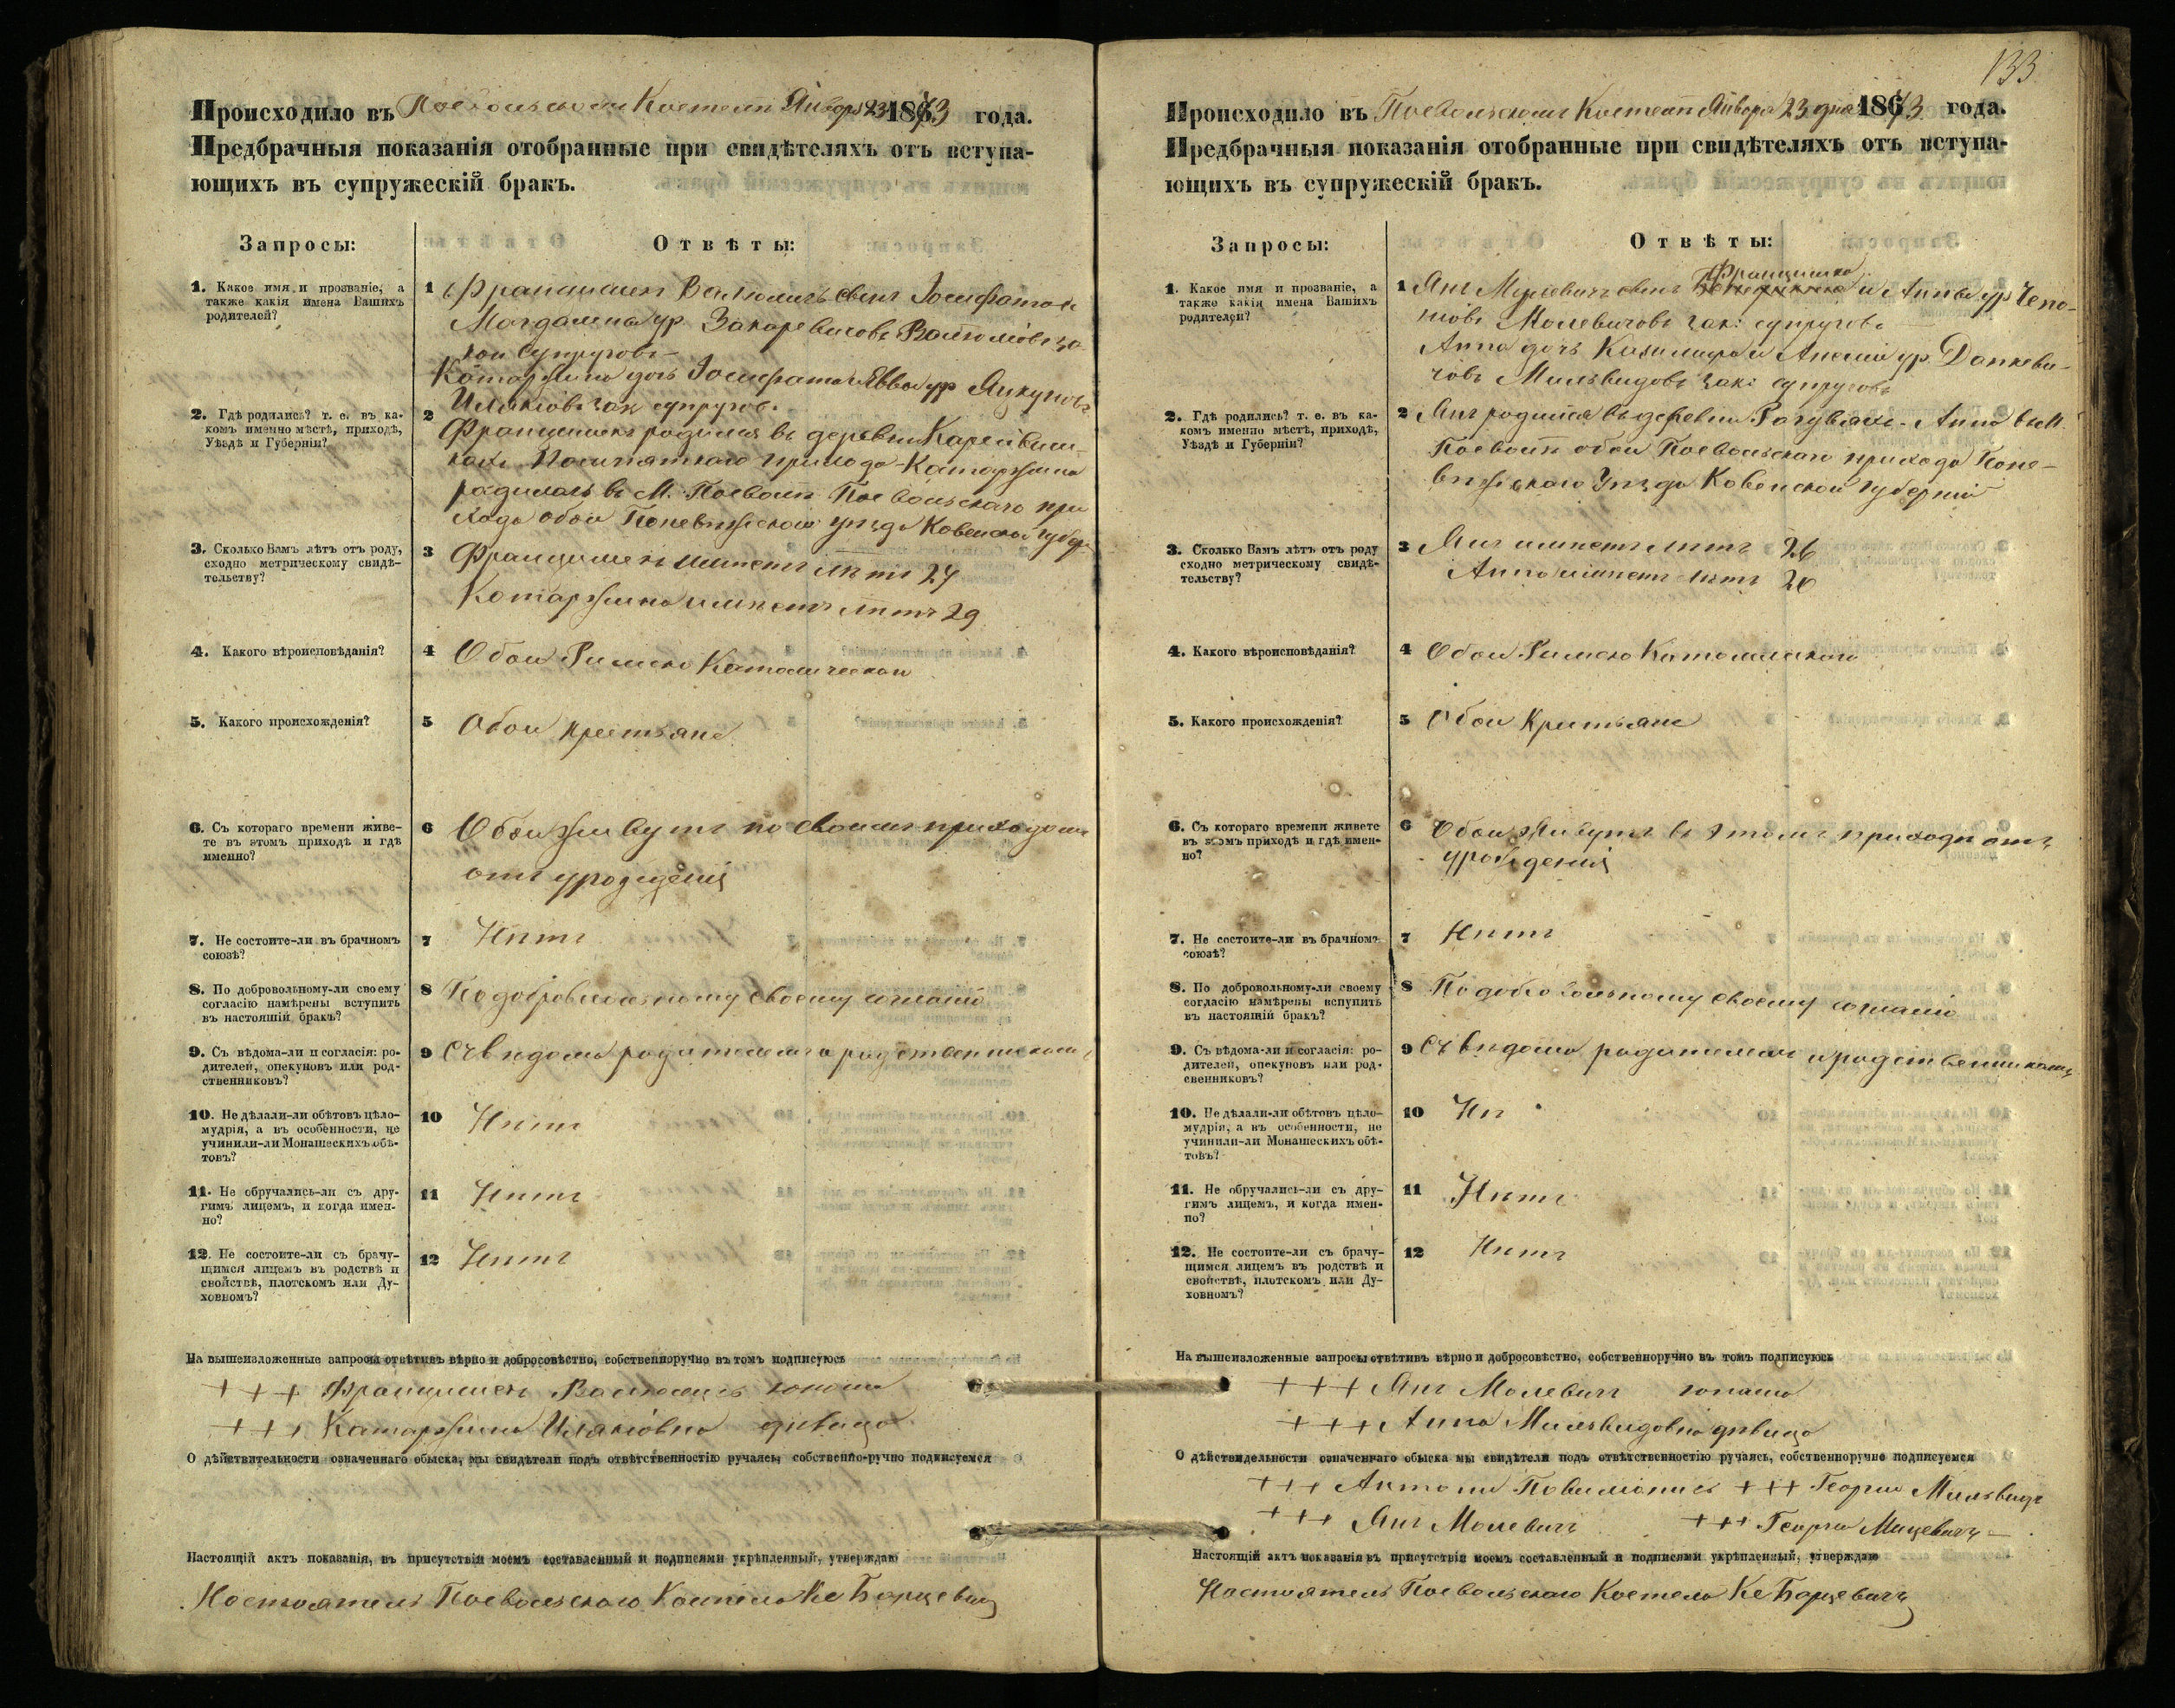 Происходило въ Поевольскомъ Костелѣ Января 23 1873 года.
Предбрачныя показанія отобранные при свидѣтеляхъ отъ вступа-
ющихъ въ супружескій бракъ.
Запросы:
Отвѣты:
1. Какое имя и прозваніе, а
также какія имена Вашихъ
родителей?
1 Францишекъ сынъ Іосифата и
Магдалины ур Закаревичовъ за
кон супруговъ
Катаржина дочь Іосифата и Еввы ур
зак супругов.
2. Гдѣ родились? т. е. въ ка-
комъ именно мѣстѣ, приходѣ,
Уѣздѣ и Губерніи?
2 Францишекъ родился въ деревни
прихода Катаржина
родилась въ М. Поеволѣ Поевольскаго при
хода обои Поневѣжскаго уѣзда Ковенской губер
3. Сколько Вамъ лѣтъ отъ роду,
сходно метрическому свидѣ-
тельству?
3 Францишекъ имѣетъ лѣтъ 24
Катаржина имѣетъ лѣтъ 29
4. Какого вѣроисповѣданія?
4 Обои Римско Католическои
5. Какого происхожденія?
5 Обои крестьяне
6. Съ котораго времени живе-
те въ этомъ приходѣ и гдѣ
именно?
6 Обои живутъ по своимъ приходамъ
отъ урождения
7. Не состоите-ли въ брачномъ
союзѣ?
7 Нѣтъ
8. По добровольному-ли своему
согласію намѣрены вступить
въ настоящій бракъ?
8 По добровольному своему согласію
9. Съ вѣдома-ли и согласія: ро-
дителей, опекуновъ или род-
ственниковъ?
9 Съ вѣдома родителей и родственников
10. Не дѣлали-ли обѣтовъ цѣло-
мудрія, а въ особенности, не
учинили-ли Монашескихъ обѣ-
товъ?
10 Нѣтъ
11. Не обручались-ли съ дру-
гимъ лицемъ, и когда имен-
но?
11 Нѣтъ
12. Не состоите-ли съ брачу-
щимся лицемъ въ родствѣ и
свойствѣ, плотскомъ или Ду-
ховномъ?
12 Нѣтъ
На вышеизложенные запросы отвѣтивъ вѣрно и добросовѣстно, собственноручно въ томъ подписуюсь
+++ Францишекъ юноша
+++ Катаржина дѣвица
О дѣйствительности означеннаго обыска, мы свидѣтели подъ отвѣтственностію ручаясь, собственно-ручно подписуемся
Настоящій актъ показанія, въ присутствіи моемъ составленный и подписями укрѣпленный, утверждаю
Настоятель Поевольскаго Костела Кс Борцевичъ
133
Происходило въ Поевольскомъ Костелѣ Января 23 дня 1873 года.
Предбрачныя показанія отобранные при свидѣтеляхъ отъ вступа-
ющихъ въ супружескій бракъ.
Запросы:
Отвѣты:
1. Какое имя и прозваніе, а
также какія имена Вашихъ
родителей?
Францишка
1 Янъ сынъ и Анны ур Чепо-
нювъ Молевичовъ зак: супруговъ
Анна дочь Казимира и Анелии ур. Данкеви-
човъ Мильвидовъ зак: супруговъ
2. Гдѣ родились? т. е. въ ка-
комъ именно мѣстѣ, приходѣ,
Уѣздѣ и Губерніи?
2 Янъ родился въ деревни Рагувяхъ - Анна въ М.
Поеволѣ обои Поевольскаго прихода Поне-
вѣжскаго Уѣзда Ковенской губерніи
3. Сколько Вамъ лѣтъ отъ роду
сходно метрическому свидѣ-
тельству?
3 Янъ имѣетъ лѣтъ 26
Анна имѣетъ лѣтъ 20
4. Какого вѣроисповѣданія?
4 Обои Римско Католическаго
5. Какого происхожденія?
5 Обои Кристьяне
6. Съ котораго времени живете
въ этомъ приходѣ и гдѣ имен-
но?
6 Обои живутъ въ этомъ приходѣ отъ
урождения
7. Не состоите-ли въ брачномъ
союзѣ?
7 Нѣтъ
8. По добровольному-ли своему
согласію намѣрены вспупить
въ настоящій бракъ?
8 По добровольному своему согласію
9. Съ вѣдома-ли и согласія: ро-
дителей, опекуновъ или род-
свенниковъ?
9 Съ вѣдома родителей и родственниковъ
10. Не дѣлали-ли обѣтовъ цѣло-
мудрія, а въ особенности, не
учинили-ли Монашескихъ обѣ-
товъ?
10 Нѣ
11. Не обручались-ли съ дру-
гимъ лицемъ, и когда имен-
но?
11 Нѣтъ
12. Не состоите-ли съ брачу-
щимся лицемъ въ родствѣ и
свойствѣ, плотскомъ или Ду-
ховномъ?
12 Нѣтъ
На вышеизложенные запросы отвѣтивъ вѣрно и добросовѣстно, собственноручно въ томъ подписуюсь
+++ Янъ Молевичъ юноша
+++ Анна Мильвидовна дѣвица
О дѣйствидельности означеннаго обыска мы свидѣтели подъ отвѣтственностію ручаясь, собственноручно подписуемся
+++ Антони +++ Георги Мильвидъ
+++ Янъ Молевичъ +++ Георги Мицевичъ
Настоящій актъ показанія въ присутствіи моемъ составленный и подписями укрѣпленный, утверждаю
Настоятель Поевольскаго Костела Кс Борцевичъ